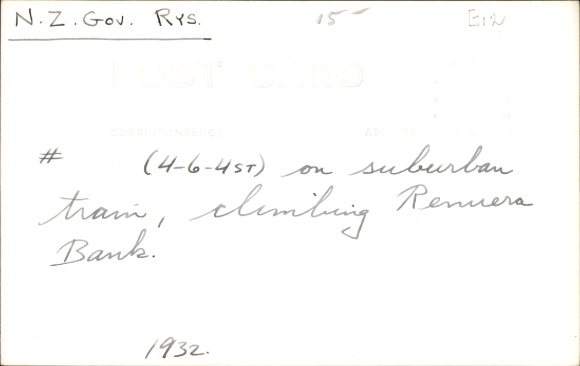 N.Z. Gov. Rys. 15- E12
POST CARD
CORRESPONDENCE ADDRESS
# (4-6-4ST) on suburban
train, climbing Remuera
Bank.
1932.